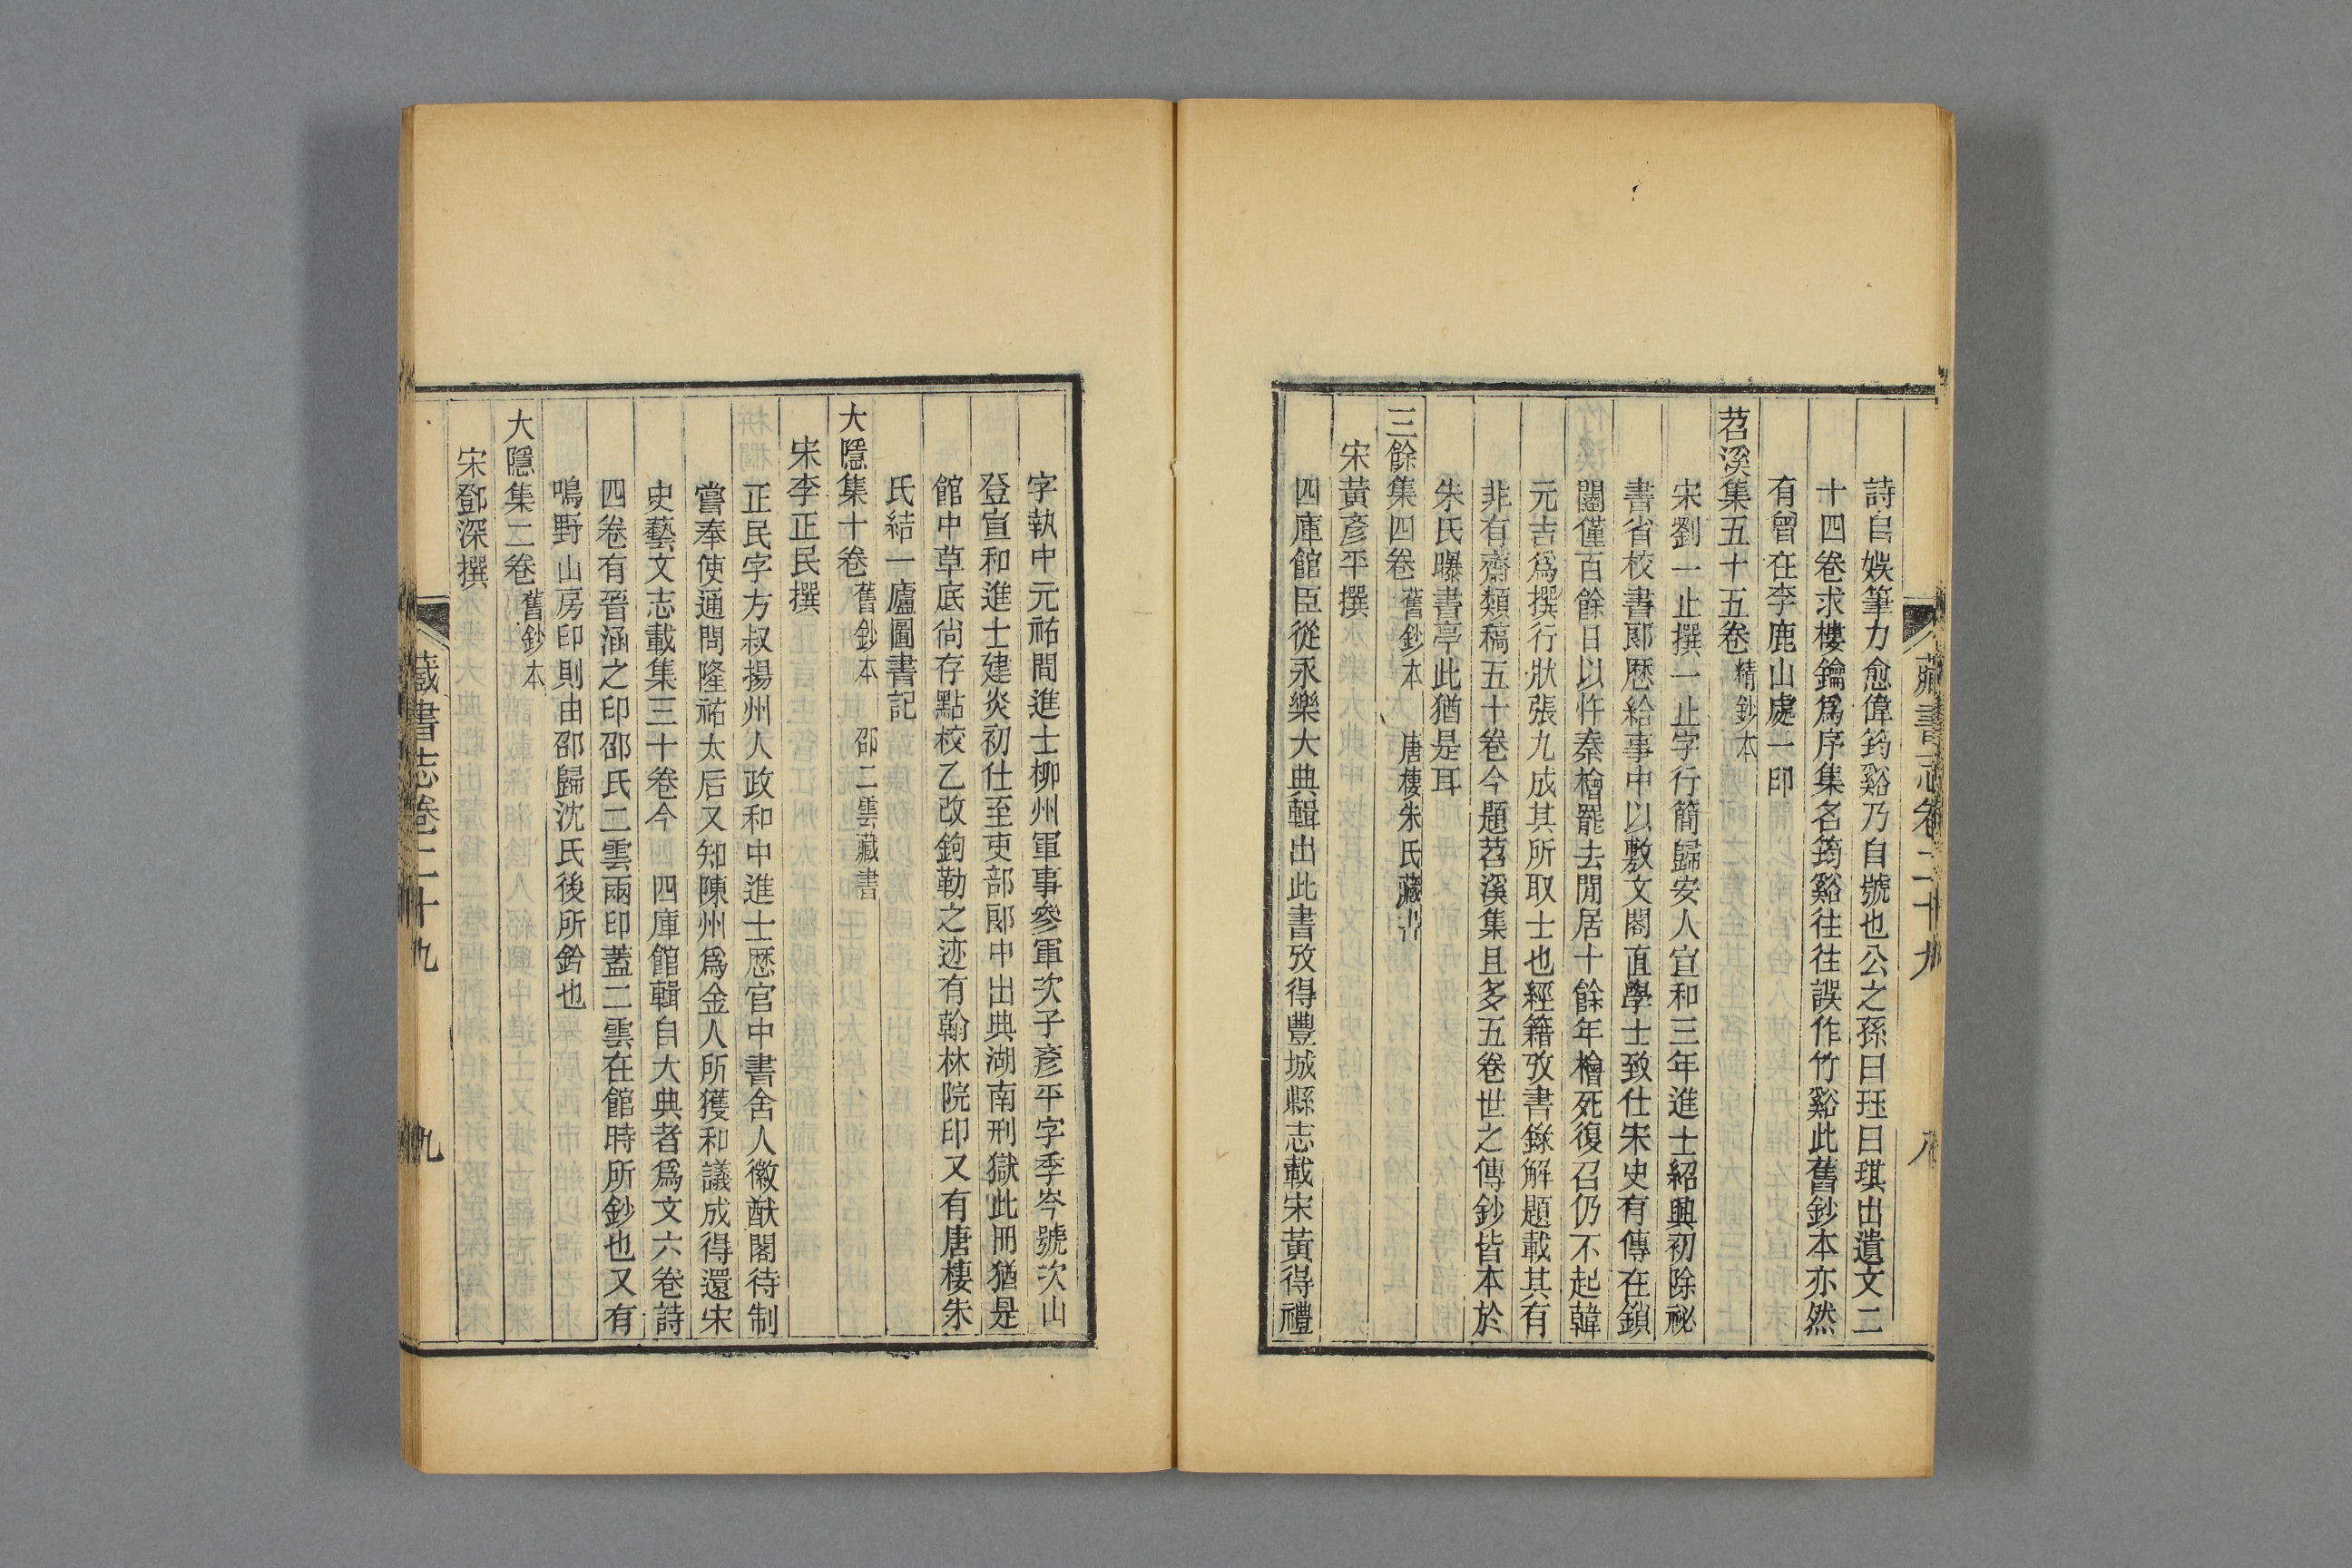 藏書志卷二十九
八
詩自娛筆力愈偉筠谿乃自號也公之孫曰珏曰琪出遺文二
十四卷求樓鑰爲序集名筠谿往往誤作竹谿此舊鈔本亦然
有曾在李鹿山處一印
苕溪集五十五卷 精鈔本
宋劉一止撰一止字行簡歸安人宣和三年進士紹興初除祕
書省校書郞歴給事中以敷文閣直學士致仕宋史有傳在鎖
闥僅百餘日以忤秦檜罷去閒居十餘年檜死復召仍不起韓
元吉爲撰行狀張九成其所取士也經籍攷書錄解題載其有
非有齋類稿五十卷今題苕溪集且多五卷世之傳鈔皆本於
朱氏曝書亭此猶是耳
三餘集四卷 舊鈔本 唐棲朱氏藏書
宋黃彥平撰
四庫館臣從永樂大典輯出此書攷得豐城縣志載宋黃得禮
字執中元祐間進士柳州軍事參軍次子彥平字季岑號次山
登宣和進士建炎初仕至吏部郞中出典湖南刑獄此冊猶是
館中草底尙存點校乙改鉤勒之迹有翰林院印又有唐棲朱
氏結一廬圖書記
大隱集十卷 舊鈔本 邵二雲藏書
宋李正民撰
正民字方叔揚州人政和中進士歴官中書舍人徽猷閣待制
嘗奉使通問隆祐太后又知陳州爲金人所獲和議成得還宋
史藝文志載集三十卷今 四庫館輯自大典者爲文六卷詩
四卷有晉涵之印邵氏二雲兩印蓋二雲在館時所鈔也又有
鳴野山房印則由邵歸沈氏後所鈐也
大隱集二卷 舊鈔本
宋鄧深撰
藏書志卷二十九
九